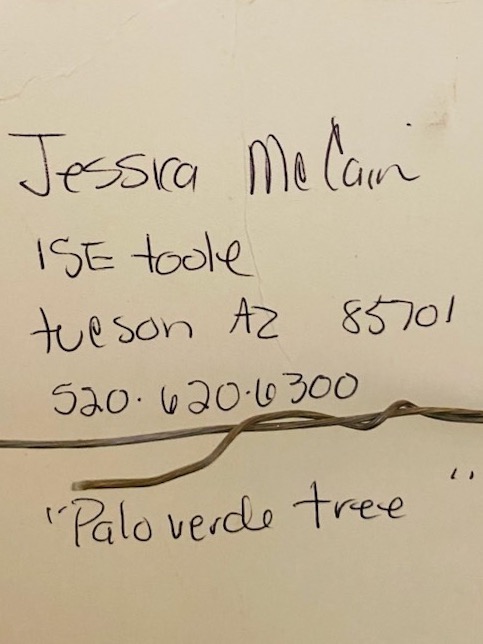 Jessica McCain
15E toole
tucson AZ 85701
520.620.6300
"Palo verde tree"